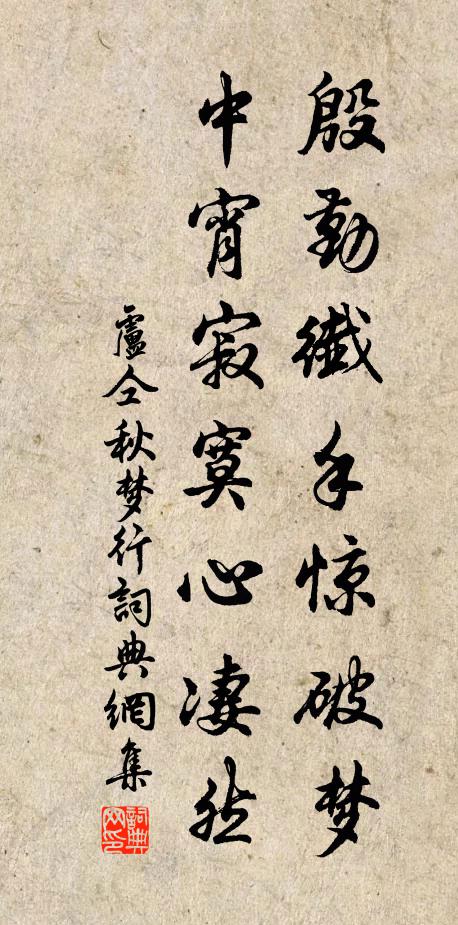 殷勤纖手惊破梦
中宵寂寞心凄然
盧仝秋梦行詞典網集
詞典网印